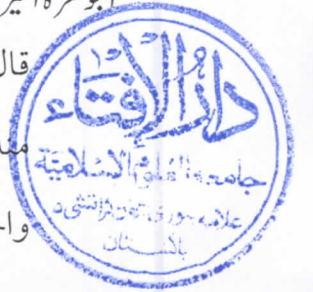 ابو
قال
دار الإفتاء
جامعة العلوم الإسلامية
علامہ بنوری ٹاؤن کراتشی ٥
باكستان